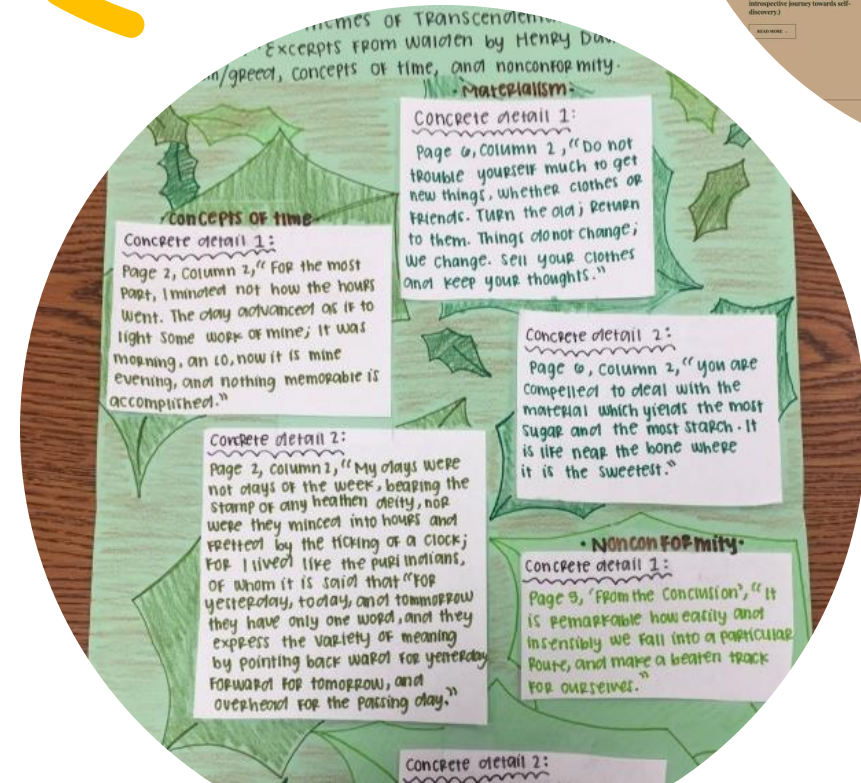 introspective journey towards self-
discovery.)
READ MORE
THEMES OF TRANSCENDENT
EXCERPTS FROM Walden by Henry Dav
m/greed, concepts of time, and nonconformity.
·Materialism·
Concrete detail 1:
Page 6, Column 2, "Do not
trouble yourself much to get
new things, whether clothes or
friends. Turn the old; Return
to them. Things do not change;
we change. Sell your clothes
and keep your thoughts."
·Concepts of time·
Concrete detail 1:
Page 2, Column 2, "For the most
part, I minded not how the hours
went. The day advanced as if to
light some work of mine; it was
morning, an lo, now it is mine
evening, and nothing memorable is
accomplished."
Concrete detail 2:
Page 6, Column 2, "you are
compelled to deal with the
material which yields the most
sugar and the most starch. It
is life near the bone where
it is the sweetest."
Concrete detail 2:
Page 2, column 2, "My days were
not days of the week, bearing the
stamp of any heathen deity, nor
were they minced into hours and
fretted by the ticking of a clock;
for I lived like the puri indians,
of whom it is said that "for
yesterday, today, and tommorrow
they have only one word, and they
express the variety of meaning
by pointing back ward for yesterday
forward for tomorrow, and
overhead for the passing day."
·Nonconformity·
Concrete detail 1:
Page 5, 'From the Conclusion', "It
is remarkable how easily and
insensibly we fall into a particular
route, and make a beaten track
for ourselves."
Concrete detail 2: